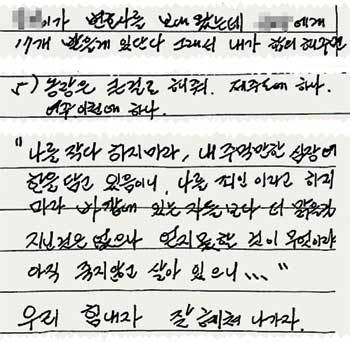 이가 변호사를 보내 왔는데 에게
17개 받을게 있단다 그래서 내가 합의해주면
5) 농장은 큰걸로 해줘. 제주도에 하나.
이천에 하나.
"나를 작다 하지마라, 내 주먹만한 심장에
한을 담고 있음이니, 나를 죄인이라고 하지
마라 바깥에 있는 자들보다 더
지닌것은 없으나 얻지못한 것이 무엇이랴
아직 죽지않고 살아 있으니..."
우리 힘내자 잘 헤쳐 나가자.